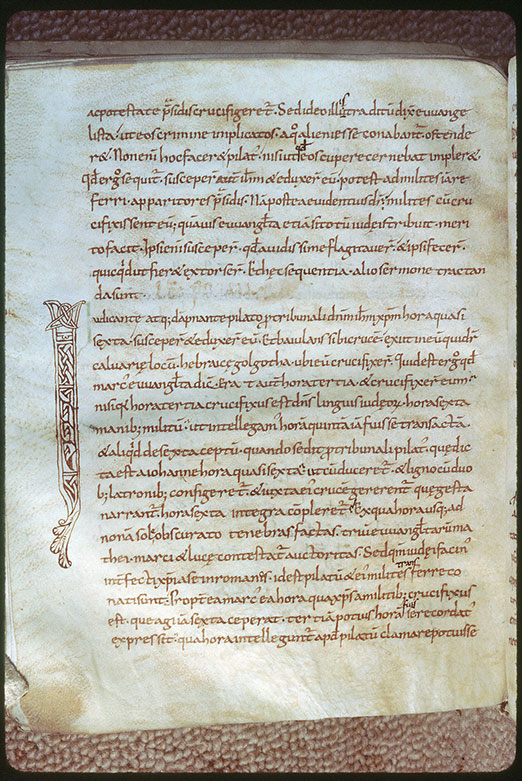 ac potestate p̄sidis crucifigeret̄. Sed ideo illis traditū dix̄ euuange
lista. ut eos crimine implicatos. a q̊ alieni esse conabant̄. ostende
r&. Non eni hoc facer& pilat᾽. nisi ut id qđ eos cupere cernebat impler&
Qđ ergo sequit̄. susceper autē ihm & eduxer eū. potest ad milites iā re
ferri. apparitores p̄sidis. Nā postea euidentius dr. milites eū cru
cifixissent eū. quāuis euuanglista etiā si totū iudęis tribuit. meri
to facit. Ipsi enī susceper̄. qđ auidissime flagitauer̄. & ipsi fecer̄.
quicqđ ut fier& extorser̄. Et hęc sequentia. alio sermone tractan
da sunt.
Iudicante. atq; dāpnante pilato p tribunali dn̄m ihm xp̄m hora quasi
sexta. susceper & eduxer eū. Et baiulans sibi cruce. exiit in eū qui dr̄
caluarię locū. hebraice golgotha. ubi eū crucifixer̄. Quid est ergo qđ
marc᾽ euuanglista dic̄. Erat autē hora tertia. & crucifixer eum.
nisi q hora tertia crucifixus est dn̄s linguis iudęor. hora sexta
manib; militū. ut intellegam᾽ horā quintā iā fuisse transactā.
& aliqđ de sexta cęptū. quando sedit p tribunali pilat᾽. que dic
ta est a iohanne hora quasi sexta. ut cū duceret̄. & ligno cū duo
b; latronib; configeret̄. & iuxta ei᾽ crucē gererent̄ quę gesta
narrant̄. hora sexta integra cōpleret̄. Ex qua hora usq; ad
nonā sole obscurato tenebras factas. triū euuanglistarū ma
thei. marci & lucę contestat̄ auctoritas. Sed qm iudęi facin᾽
intfecti xpi a se in romanos. id est pilatū & ei᾽ milites trans ferre co
nati sunt. Propterea marc᾽ ea hora qua xps a militib; crucifixus
est. que agi a sexta cęperat. tertiā potius horā fuisse recordat᾽
expressit. qua hora intellegunt̄ apđ pilatū clamare potuisse